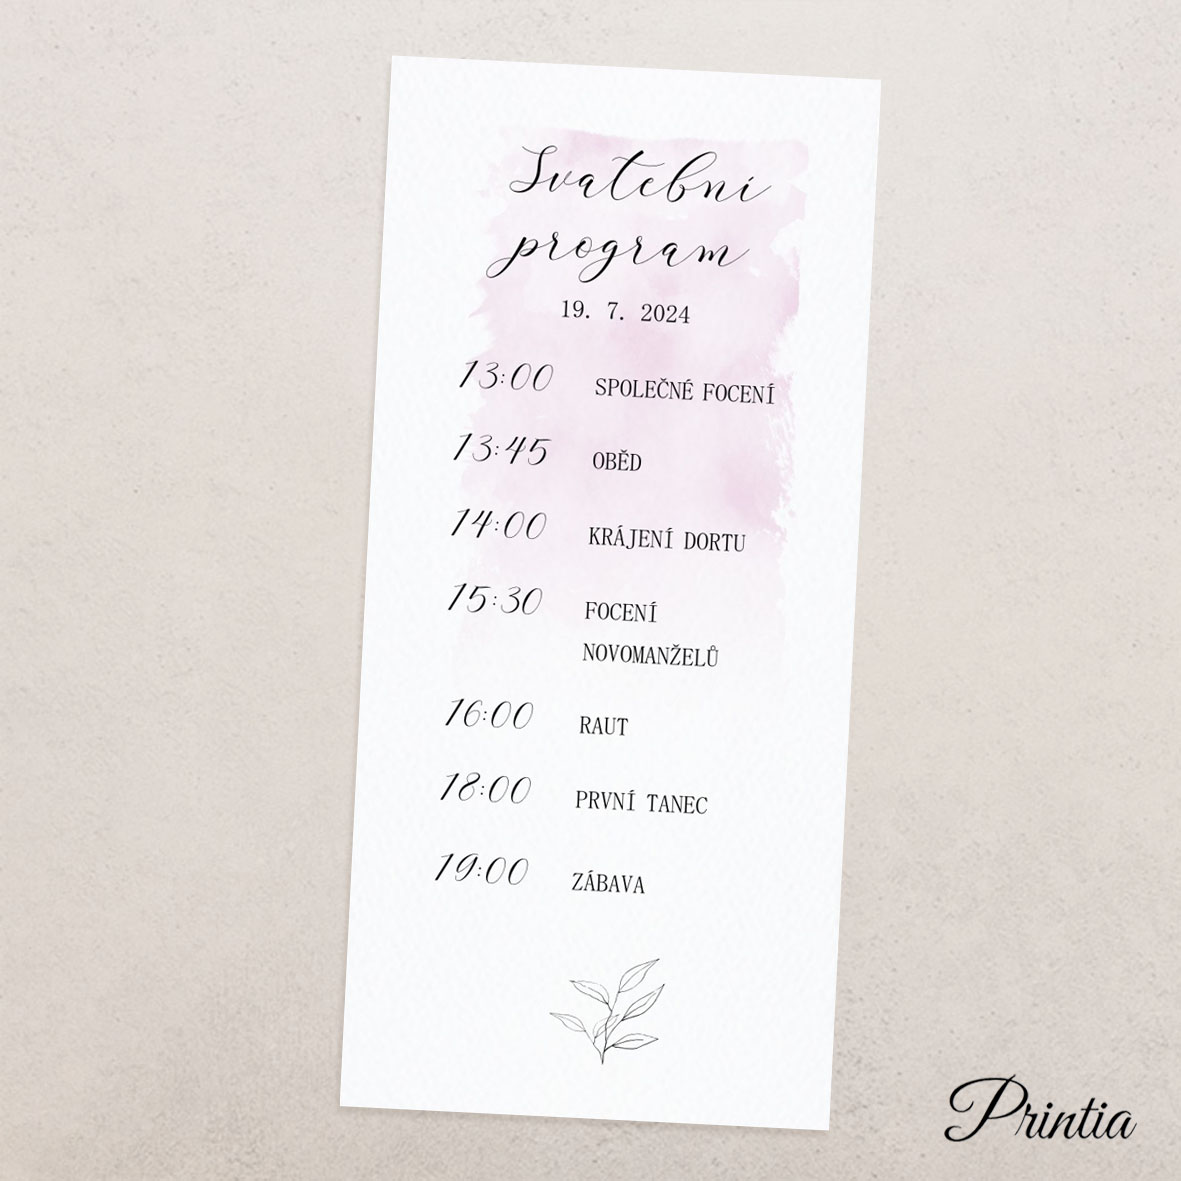 Svatební
program
19. 7. 2024
13:00 SPOLEČNÉ FOCENÍ
13:45 OBĚD
14:00 KRÁJENÍ DORTU
15:30 FOCENÍ
NOVOMANŽELŮ
16:00 RAUT
18:00 PRVNÍ TANEC
19:00 ZÁBAVA
Printia